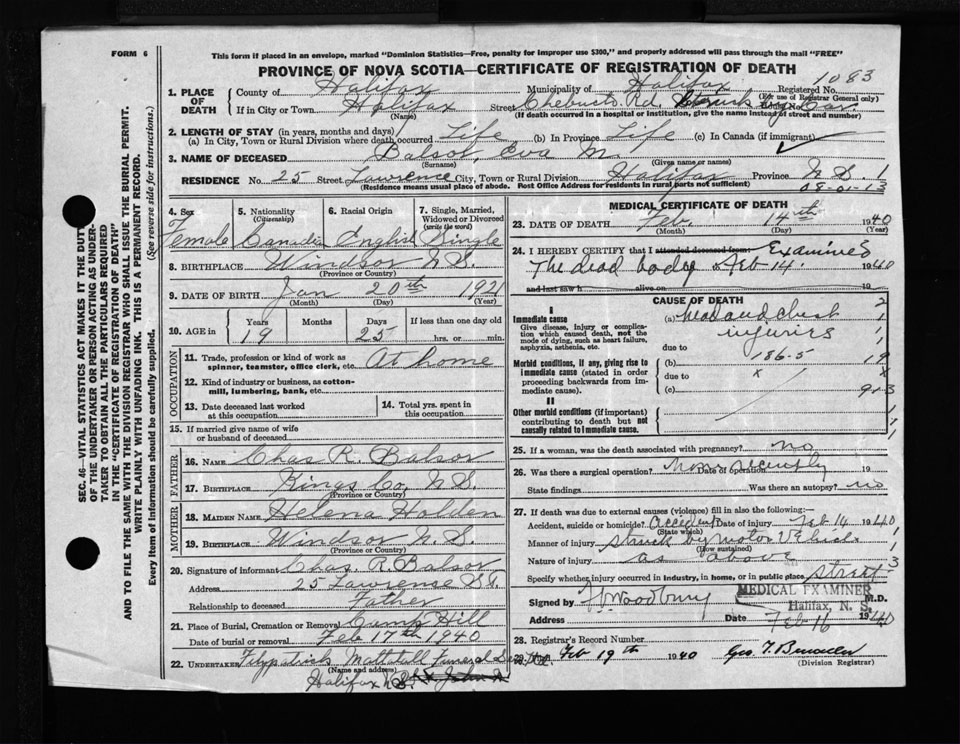 FORM 6
This form if placed in an envelope, marked "Dominion Statistics—Free, penalty for improper use $300," and properly addressed will pass through the mail "FREE"
PROVINCE OF NOVA SCOTIA—CERTIFICATE OF REGISTRATION OF DEATH
SEC. 46—VITAL STATISTICS ACT MAKES IT THE DUTY
OF THE UNDERTAKER OR PERSON ACTING AS UNDER-
TAKER TO OBTAIN ALL THE PARTICULARS REQUIRED
IN THE "CERTIFICATE OF REGISTRATION OF DEATH"
AND TO FILE THE SAME WITH THE DIVISION REGISTRAR WHO SHALL ISSUE THE BURIAL PERMIT.
WRITE PLAINLY WITH UNFADING INK. THIS IS A PERMANENT RECORD.
Every item of Information should be carefully supplied. (See reverse side for instructions.)
1. PLACE OF DEATH
County of Halifax Municipality of Halifax Registered No. 1083
(For use of Registrar General only)
If in City or Town Halifax Street Chebucto Rd. Struck by Car.
(Name) (If death occurred in a hospital or institution, give the name instead of street and number)
2. LENGTH OF STAY (in years, months and days)
(a) In City, Town or Rural Division where death occurred Life (b) In Province Life (c) In Canada (if immigrant) ✓
3. NAME OF DECEASED Balsor, Eva M.
(Surname) (Given name or names)
RESIDENCE No. 25 Street Lawrence City, Town or Rural Division Halifax Province N.S. 1
(Residence means usual place of abode. Post Office Address for residents in rural parts not sufficient) 08-01-13
4. Sex Female
5. Nationality (Citizenship) Canadian
6. Racial Origin English
7. Single, Married, Widowed or Divorced (write the word) Single
8. BIRTHPLACE Windsor N.S.
(Province or Country)
9. DATE OF BIRTH Jan 20th 1921
(Month) (Day) (Year)
10. AGE in Years 19 Months Days 25 If less than one day hrs. or min.
OCCUPATION
11. Trade, profession or kind of work as spinner, teamster, office clerk, etc. At home
12. Kind of industry or business, as cotton-mill, lumbering, bank, etc.
13. Date deceased last worked at this occupation
14. Total yrs. spent in this occupation
15. If married give name of wife or husband of deceased
FATHER
16. NAME Chas R. Balsor
17. BIRTHPLACE Kings Co, N.S.
(Province or Country)
MOTHER
18. MAIDEN NAME Helena Holden
19. BIRTHPLACE Windsor N.S.
(Province or Country)
20. Signature of informant Chas. R. Balsor
Address 25 Lawrence St.
Relationship to deceased Father
21. Place of Burial, Cremation or Removal Camp Hill
Date of burial or removal Feb 17th 1940
22. UNDERTAKER Funeral
(Name and address)
Halifax N.S.
MEDICAL CERTIFICATE OF DEATH
23. DATE OF DEATH Feb. 14th 1940
(Month) (Day) (Year)
24. I HEREBY CERTIFY that I attended deceased from Examined
The dead body Feb 14 1940
and last saw h alive on 19
CAUSE OF DEATH
I
Immediate cause (a) head and chest 2
Give disease, injury or complication which caused death, not the mode of dying, such as heart failure, asphyxia, asthenia, etc. injuries
due to
Morbid conditions, if any, giving rise to immediate cause (stated in order proceeding backwards from immediate cause). (b) 186-5 19
due to x x
(c) 9-1-3
II
Other morbid conditions (if important) contributing to death but not causally related to immediate cause.
25. If a woman, was the death associated with pregnancy? no
26. Was there a surgical operation? Date of operation 19
State findings Was there an autopsy? no
27. If death was due to external causes (violence) fill in also the following:—
Accident, suicide or homicide? Accident Date of injury Feb 14 1940
(State which)
Manner of injury struck by motor Vehicle
(How sustained)
Nature of injury as above
Specify whether injury occurred in industry, in home, or in public place street 3
Signed by Woodbury M.D.
MEDICAL EXAMINER
Halifax, N. S.
Address Date Feb 16 1940
28. Registrar's Record Number
Feb 19th 1940
(Division Registrar)